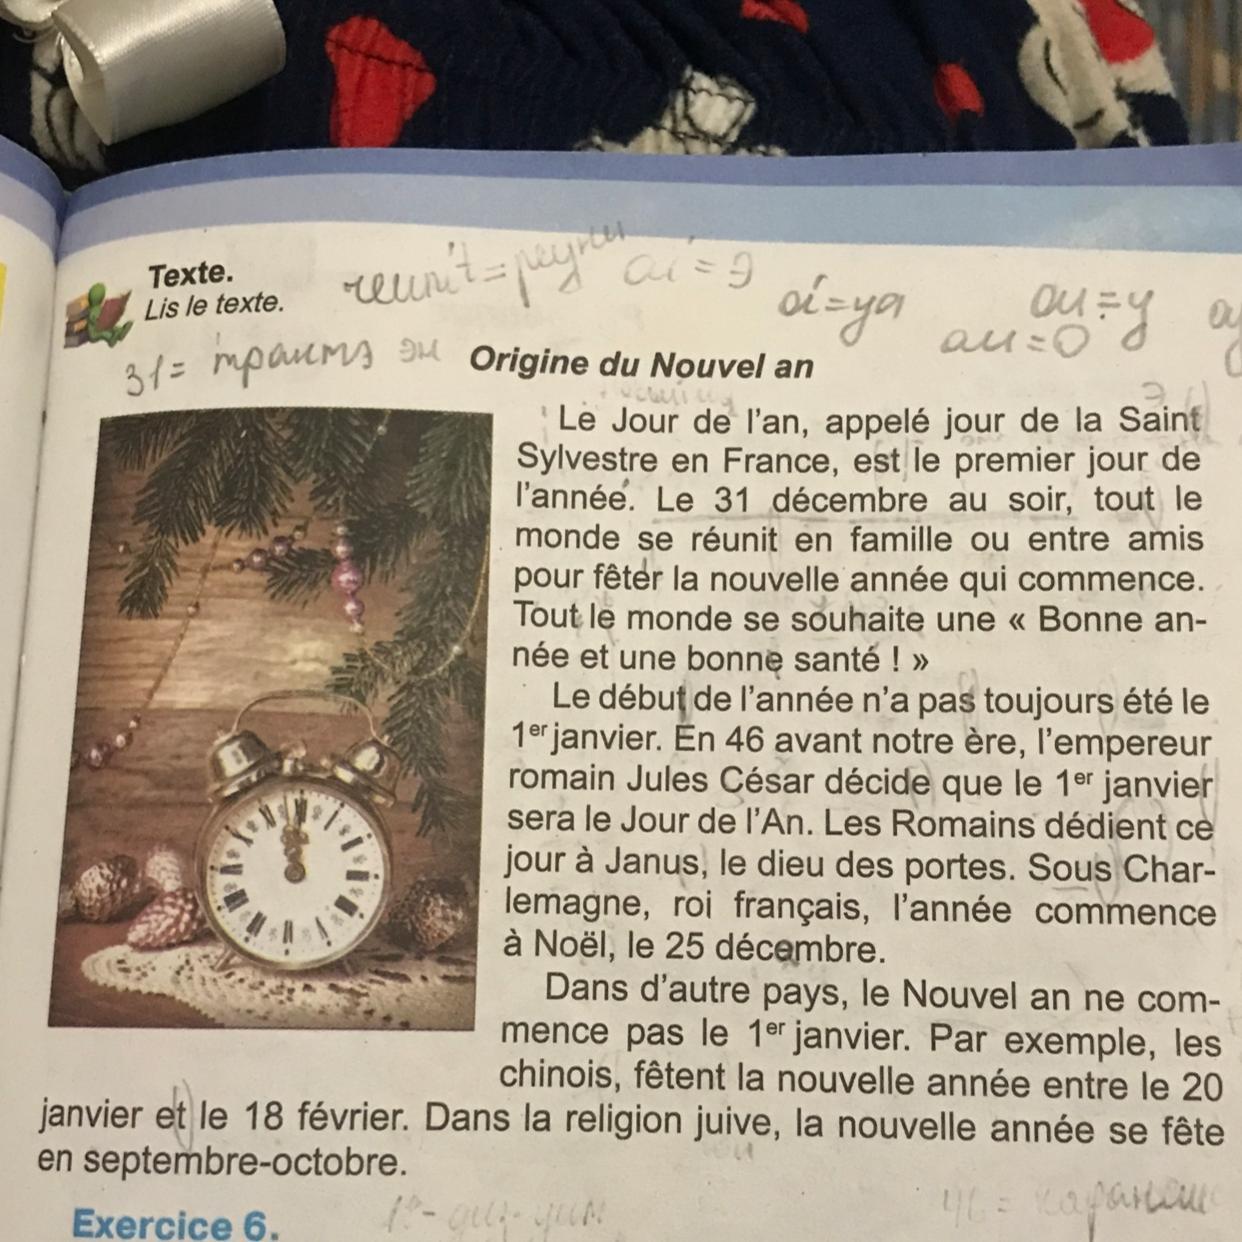 Texte.
Lis le texte.
reunit = реуни
ai = э
ai = уа
ou = у
au = о
31 = трантэ эн
Origine du Nouvel an
Le Jour de l'an, appelé jour de la Saint
Sylvestre en France, est le premier jour de
l'année. Le 31 décembre au soir, tout le
monde se réunit en famille ou entre amis
pour fêter la nouvelle année qui commence.
Tout le monde se souhaite une « Bonne an-
née et une bonne santé ! »
Le début de l'année n'a pas toujours été le
1er janvier. En 46 avant notre ère, l'empereur
romain Jules César décide que le 1er janvier
sera le Jour de l'An. Les Romains dédient ce
jour à Janus, le dieu des portes. Sous Char-
lemagne, roi français, l'année commence
à Noël, le 25 décembre.
Dans d'autre pays, le Nouvel an ne com-
mence pas le 1er janvier. Par exemple, les
chinois, fêtent la nouvelle année entre le 20
janvier et le 18 février. Dans la religion juive, la nouvelle année se fête
en septembre-octobre.
Exercice 6.